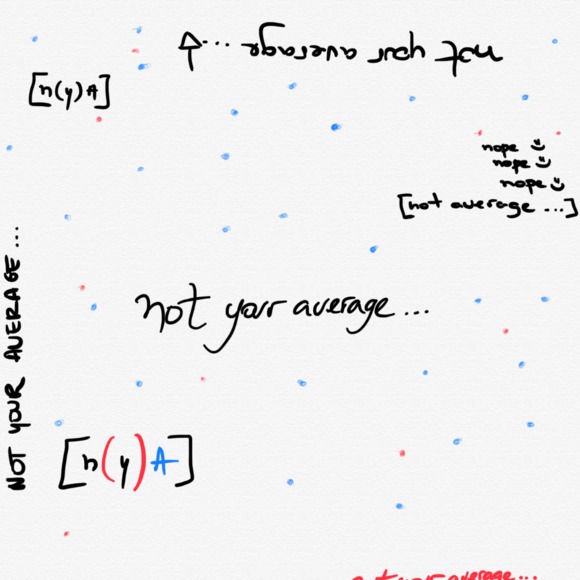 not your average ...
[n(y)A]
nope
nope
nope
[not average ...]
NOT YOUR AVERAGE ...
not your average ...
[n(y)A]
not your average ...